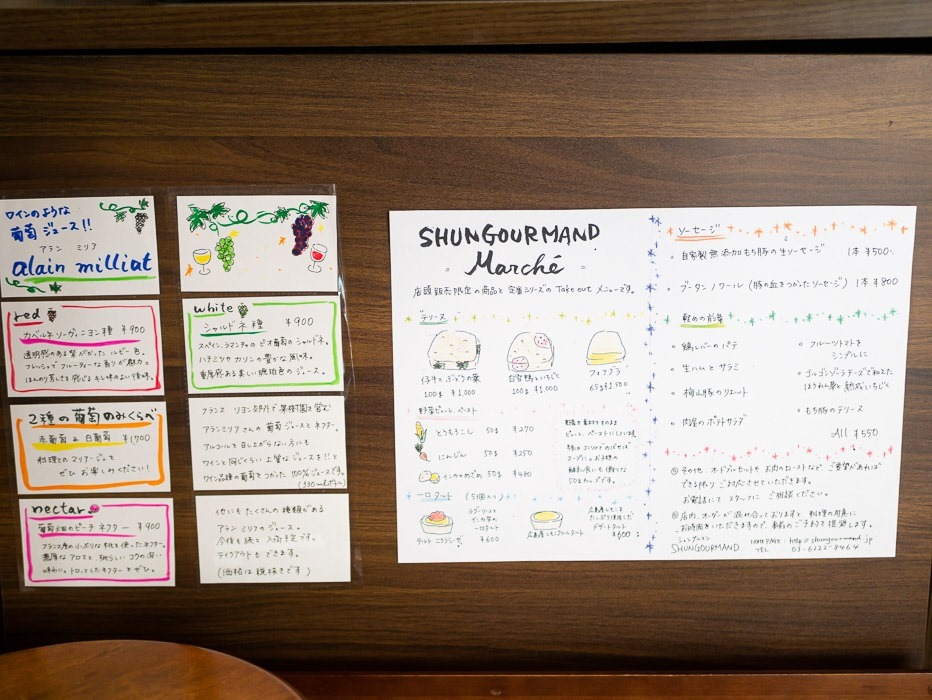 ワインのような
葡萄ジュース!!
アラン ミリア
alain milliat
red
カベルネソーヴィニヨン種 ¥900
透明感のある紫がかったルビー色。
フレッシュでフルーティーな香りが魅力
2種の葡萄のみくらべ
赤葡萄 & 白葡萄 ¥1700
料理とのマリアージュで
ぜひお楽しみください!
nectar
葡萄畑のピーチネクター ¥900
white
シャルドネ種 ¥900
スペイン、ラマンチャのビオ葡萄のシャルドネ。
ハチミツやカリンの豊かな風味。
重厚感ある美しい琥珀色のジュース。
フランス リヨン郊外で果樹園を営む
アランミリアさんの葡萄ジュースとネクター。
アルコールを召し上がらない方にも
ワインと同じくらい上質なジュースを!!と
ワイン品種の葡萄をつかった100%ジュースです。
(330mlボトル)
他にもたくさんの種類がある
アランミリアのジュース。
今後も続々入荷予定です。
テイクアウトもできます。
(価格は税抜きです)
SHUNGOURMAND
Marché
店頭販売限定の商品と定番シリーズのTake outメニューです。
テリーヌ
仔牛とぶどうの葉
100g ¥1,000
白家鶏といちじく
100g ¥1,000
フォアグラ
65g ¥1,500
野菜ピューレ、ペースト
とうもろこし 50g ¥270
にんじん 50g ¥250
インカのめざめ 50g ¥420
一口タルト (5個入り)
タルト ニソワーズ
¥600
広島産レモンクリームタルト
¥600
ソーセージ
自家製無添加もち豚の生ソーセージ 1本 ¥500-
ブータンノワール (豚の血をつかったソーセージ) 1本 ¥800
軽めの前菜
鶏レバーのパテ
生ハムとサラミ
梅山豚のリエット
肉屋のポテトサラダ
フルーツトマトを
シンプルに
ゴルゴンゾーラチーズで和えた
ほうれん草と熟成いちじく
もち豚のテリーヌ
All ¥550
◎その他、オードブルセットやお肉のローストなど、ご要望があれば
できる限りご対応させていただきます。
お電話にて スタッフに ご相談ください。
◎店内、オーダーが混み合っておりますと 料理の用意に
お時間をいただきますので、事前のご予約を推奨します。
シュングルマン
SHUNGOURMAND
HOMEPAGE : http://shungourmand.jp
TEL 03-6222-8464